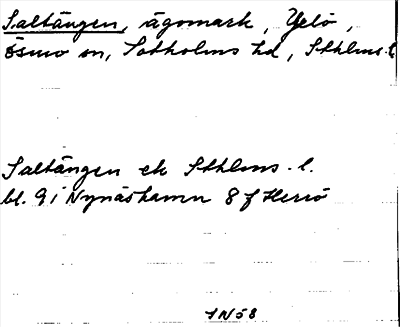 Saltängen, ägomark, Yxlö,
Ösmo sn, Sotholms hd, Sthlms l.
Saltängen ek Sthlms l.
bl. 9 i Nynäshamn 8 f Herrö
IN58